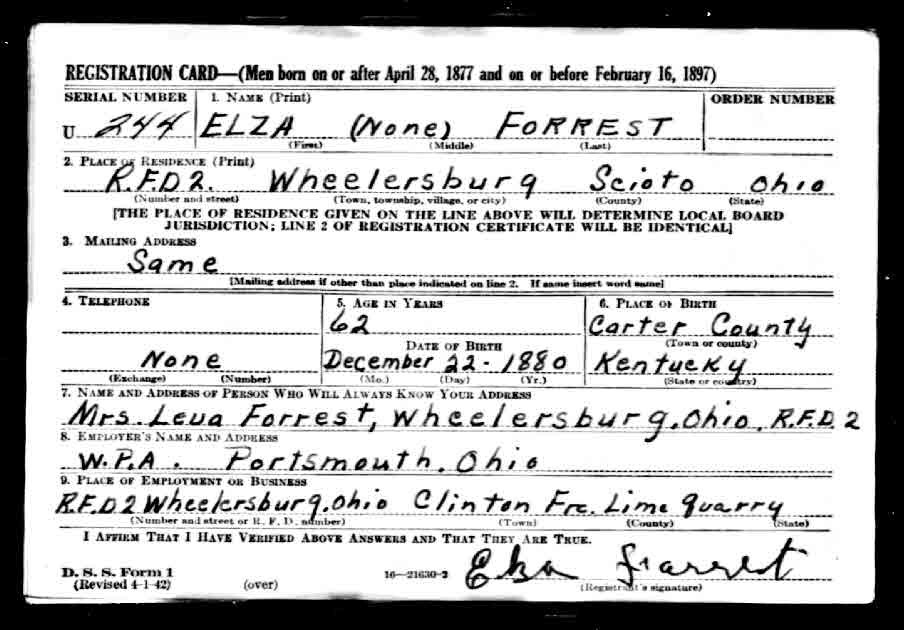 REGISTRATION CARD—(Men born on or after April 28, 1877 and on or before February 16, 1897)
SERIAL NUMBER 1. NAME (Print) ORDER NUMBER
U 244 ELZA (None) FORREST
(First) (Middle) (Last)
2. PLACE OF RESIDENCE (Print)
R.F.D 2. Wheelersburg Scioto Ohio
(Number and street) (Town, township, village, or city) (County) (State)
[THE PLACE OF RESIDENCE GIVEN ON THE LINE ABOVE WILL DETERMINE LOCAL BOARD
JURISDICTION; LINE 2 OF REGISTRATION CERTIFICATE WILL BE IDENTICAL]
3. MAILING ADDRESS
Same
[Mailing address if other than place indicated on line 2. If same insert word same]
4. TELEPHONE 5. AGE IN YEARS 6. PLACE OF BIRTH
62 Carter County
DATE OF BIRTH (Town or county)
None December 22-1880 Kentucky
(Exchange) (Number) (Mo.) (Day) (Yr.) (State or country)
7. NAME AND ADDRESS OF PERSON WHO WILL ALWAYS KNOW YOUR ADDRESS
Mrs. Leva Forrest, Wheelersburg, Ohio, R.F.D. 2
8. EMPLOYER'S NAME AND ADDRESS
W.P.A. Portsmouth, Ohio
9. PLACE OF EMPLOYMENT OR BUSINESS
R.F.D 2 Wheelersburg, Ohio Clinton Frc. Lime Quarry
(Number and street or R. F. D. number) (Town) (County) (State)
I AFFIRM THAT I HAVE VERIFIED ABOVE ANSWERS AND THAT THEY ARE TRUE.
D. S. S. Form 1
(Revised 4-1-42) (over) 16—21630-2 Elza Forrest
(Registrant's signature)